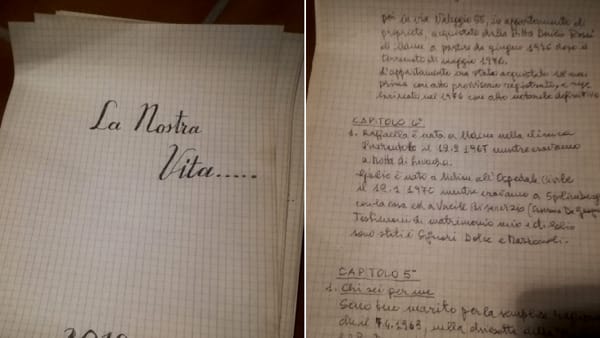 La Nostra
Vita.....
poi in via Valeggio 55, in appartamento di
proprietà, acquistato dalla Ditta Danilo Rossi
di Udine a partire da giugno 1976 dopo il
terremoto di maggio 1976.
L'appartamento era stato acquistato
prima con atto provvisorio registrato, e
nel 1976 con atto notarile definitivo
CAPITOLO 4°
1. Raffaella è nata a Udine nella clinica
il 19.9.1967 mentre eravamo
a Motta di Livenza.
è nato a Udine all'Ospedale Civile
il 19.1.1970 mentre eravamo a Spilimbergo
con la casa ed a Vacile di servizio
Testimoni di matrimonio mio e di
sono stati i Signori Dolce e
CAPITOLO 5°
1. Chi sei per me
Sono tuo marito per la semplice ragione
che il 7.4.1963, nella chiesetta